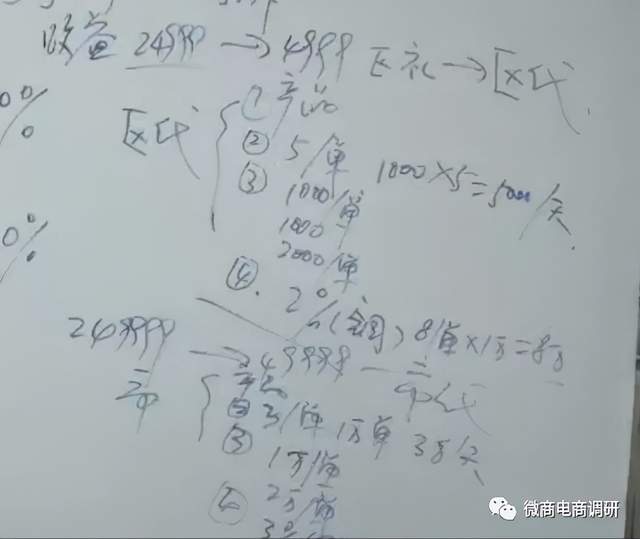 收益 24999 → 4999 区礼 → 区代
0%
区代
① 产品
② 5/单
③ 1000/单 1000×5=5000/天
1000/单
2000/单
0%
④. 2%(全国) 8单×1万=8万
249999 → 49999 — 市代
市
产品
② 3/单 1万单 3万/天
③ 1万/单
2万/单
④ 3%
微商电商调研